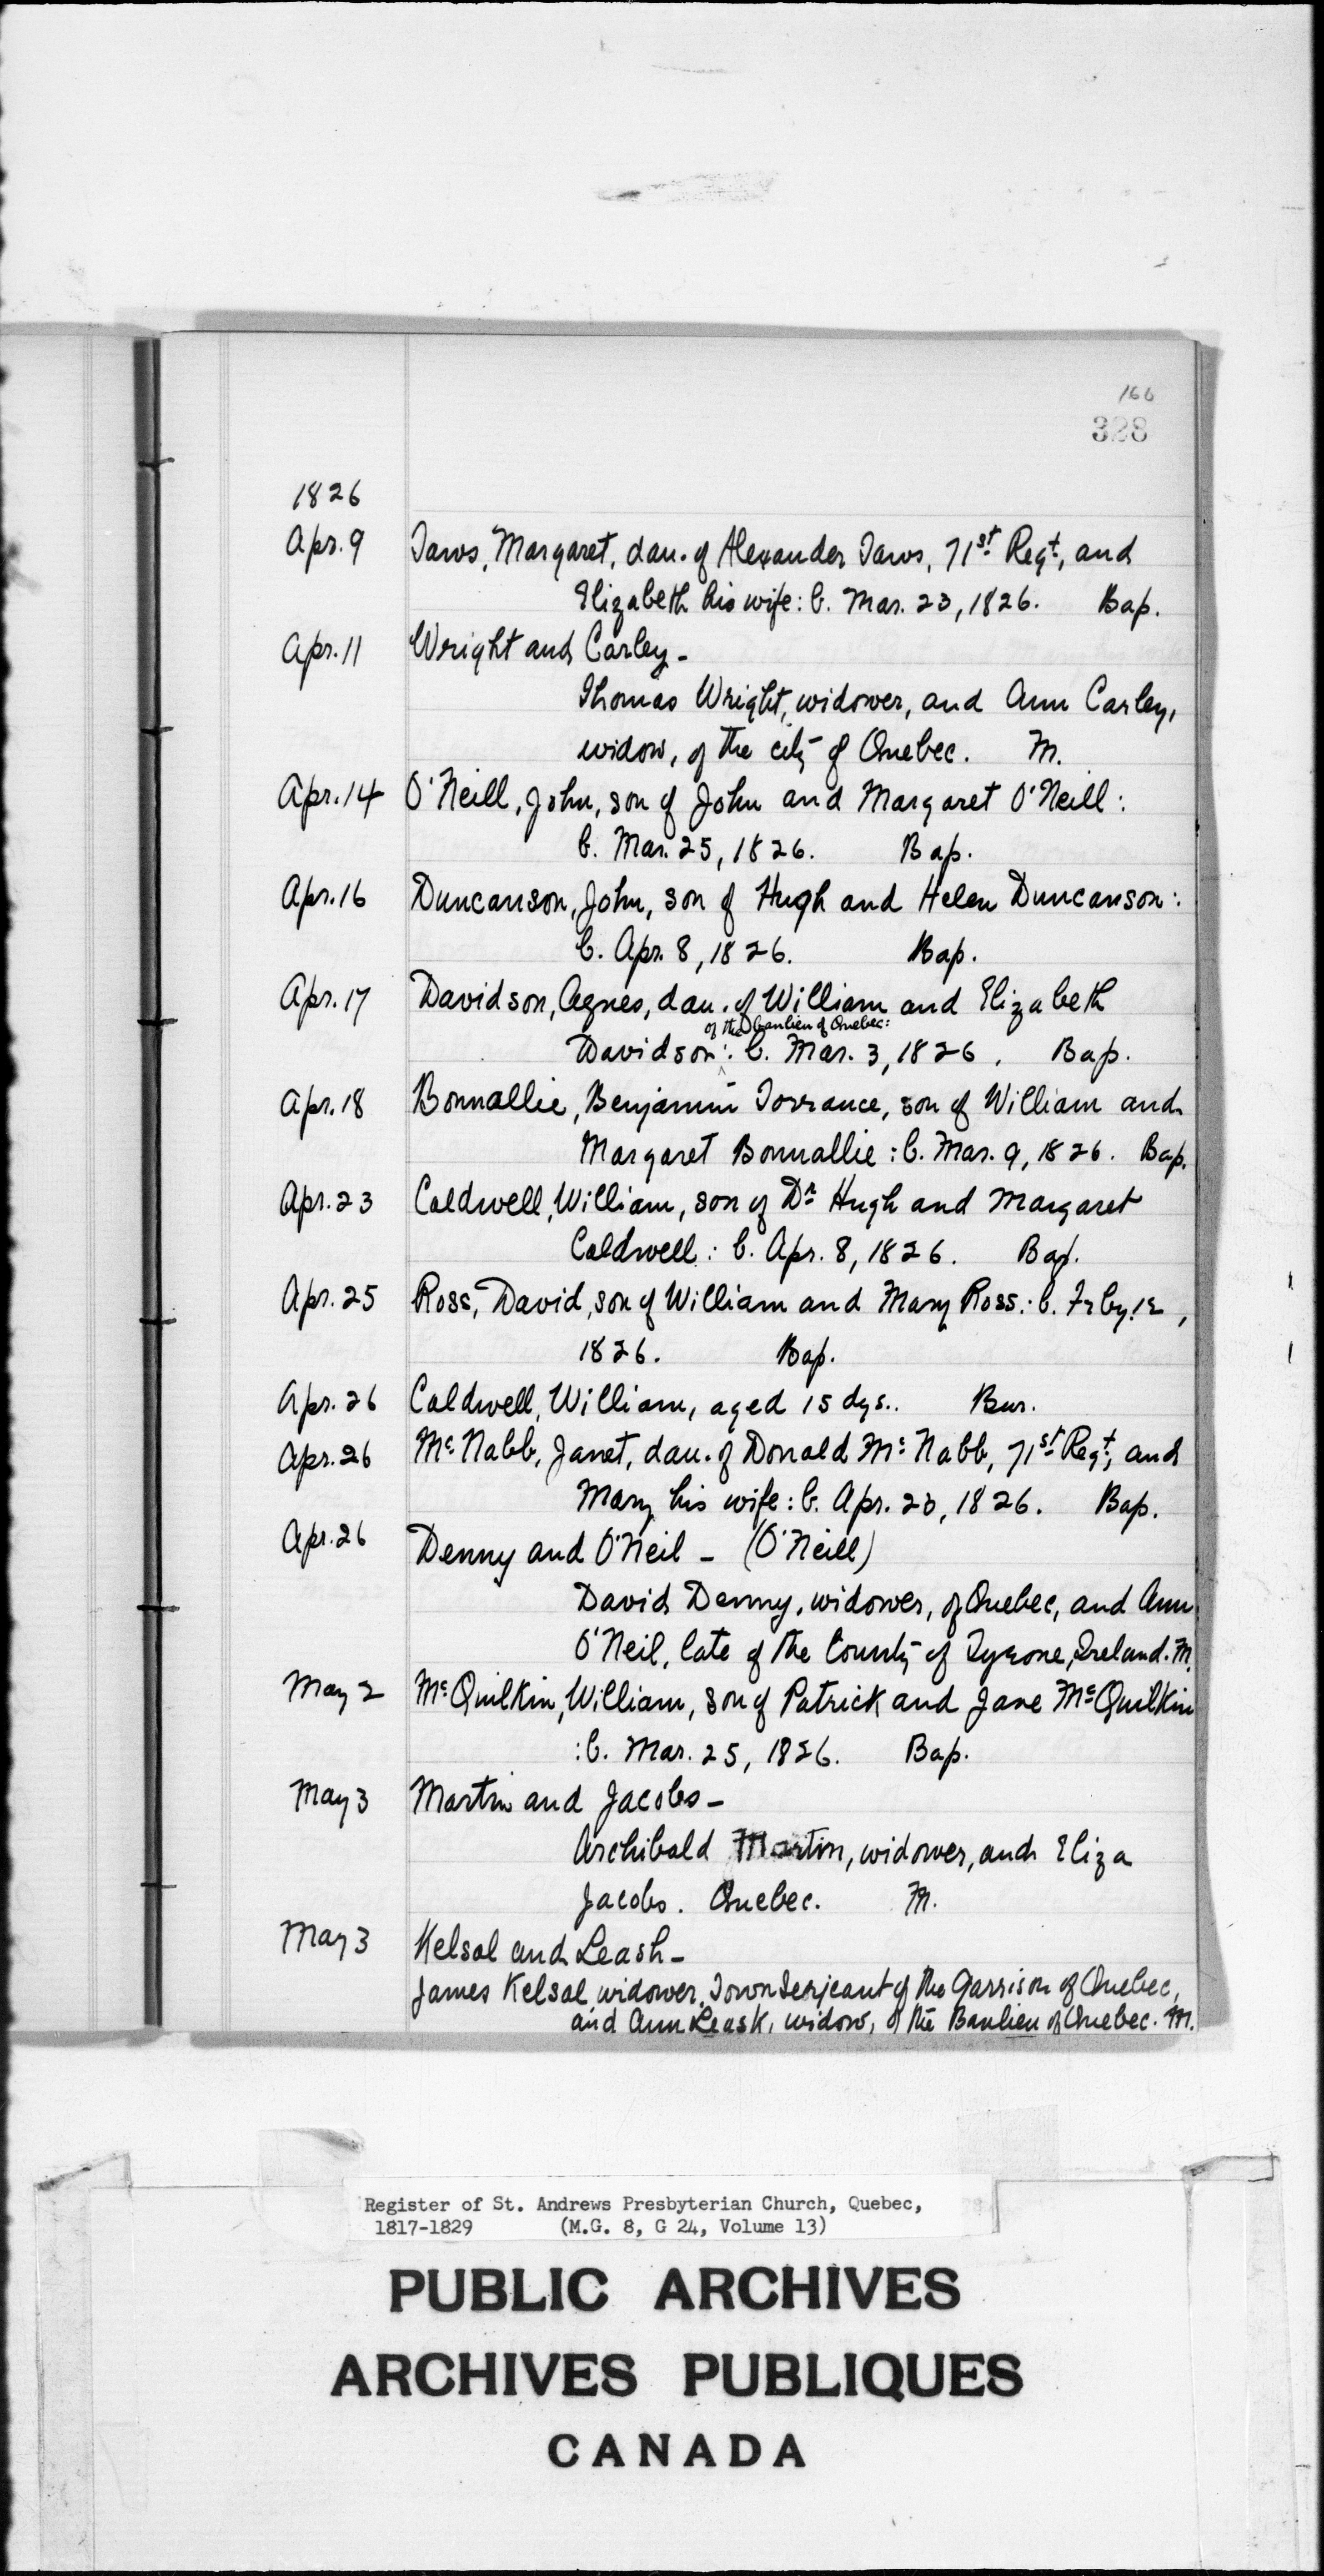 166
328
1826
Apr. 9 Taws, Margaret, dau. of Alexander Taws, 71st Regt, and
Elizabeth his wife: b. Mar. 23, 1826. Bap.
Apr. 11 Wright and Carley -
Thomas Wright, widower, and Ann Carley,
widow, of the city of Quebec. M.
Apr. 14 O'Neill, John, son of John and Margaret O'Neill:
b. Mar. 25, 1826. Bap.
Apr. 16 Duncanson, John, son of Hugh and Helen Duncanson:
b. Apr. 8, 1826. Bap.
Apr. 17 Davidson, Agnes, dau. of William and Elizabeth
of the Banlieu of Quebec:
Davidson: b. Mar. 3, 1826. Bap.
Apr. 18 Bonnallie, Benjamin Torrance, son of William and
Margaret Bonnallie: b. Mar. 9, 1826. Bap.
Apr. 23 Caldwell, William, son of Dr Hugh and Margaret
Caldwell: b. Apr. 8, 1826. Bap.
Apr. 25 Ross, David, son of William and Mary Ross: b. Feby.
1826. Bap.
Apr. 26 Caldwell, William, aged 15 dys.. Bur.
Apr. 26 Mc Nabb, Janet, dau. of Donald Mc Nabb, 71st Regt, and
Mary his wife: b. Apr. 1826. Bap.
Apr. 26 Denny and O'Neil - (O'Neill)
David Denny, widower, of Quebec, and Ann
O'Neil, late of the County of Tyrone, Ireland. M.
May 2 McQuilkin, William, son of Patrick and Jane McQuilkin
: b. Mar. 25, 1826. Bap.
May 3 Martin and Jacobs -
Archibald Martin, widower, and Eliza
Jacobs. Quebec. M.
May 3 Kelsal and Leash -
James Kelsal, widower, Town Serjeant of the Garrison of Quebec,
and Ann Leask, widow, of the Banlieu of Quebec. M.
Register of St. Andrews Presbyterian Church, Quebec,
1817-1829 (M.G. 8, G 24, Volume 13)
PUBLIC ARCHIVES
ARCHIVES PUBLIQUES
CANADA